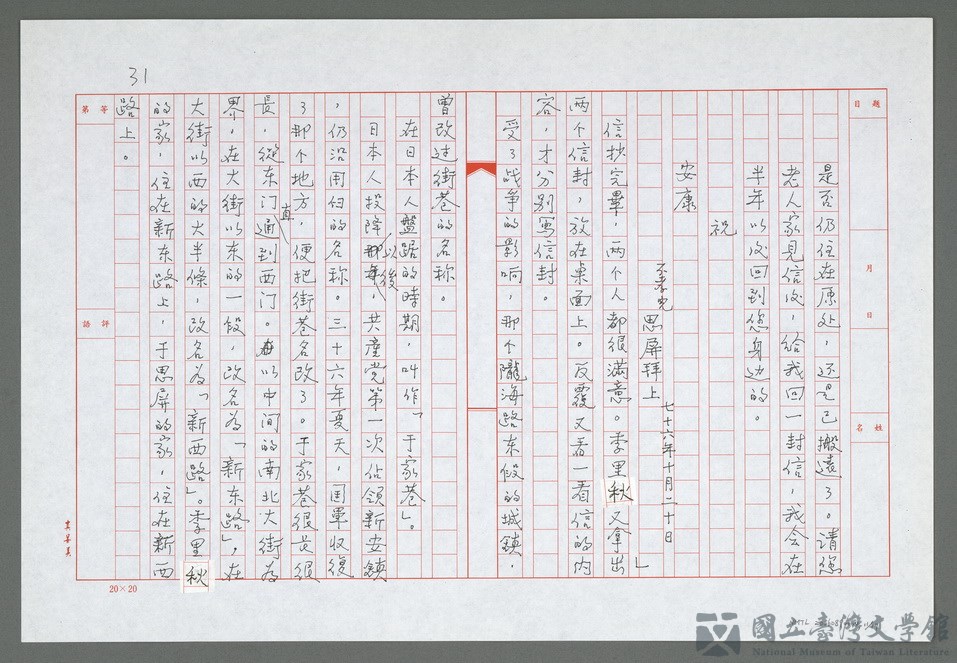 31
題目
月 日
姓名
第 等
評語
是否仍住在原处，还是已搬遠了。请您
老人家見信后，給我回一封信，我会在
半年以后回到您身边的。
祝
安康
不孝兒 思屏拜上
七十六年十月二十日」
信抄完畢，两个人都很滿意。季里秋又拿出
两个信封，放在桌面上。反覆又看一看信的內
容，才分別写信封。
受了战争的影响，那个隴海路东段的城鎮，
曾改过街巷的名称。
在日本人盤踞的時期，叫作「于家巷」。
日本人投降以後，共產党第一次佔領新安鎮
，仍沿用旧的名称。三十六年夏天，国軍收復
了那个地方，便把街巷名改了。于家巷很長很
長，從东门直通到西门。以中间的南北大街為
界，在大街以东的一段，改名為「新东路」，在
大街以西的大半條，改名為「新西路」。季里秋
的家，住在新东路上，于思屏的家，住在新西
路上。
20×20
國立臺灣文學館
National Museum of Taiwan Literature